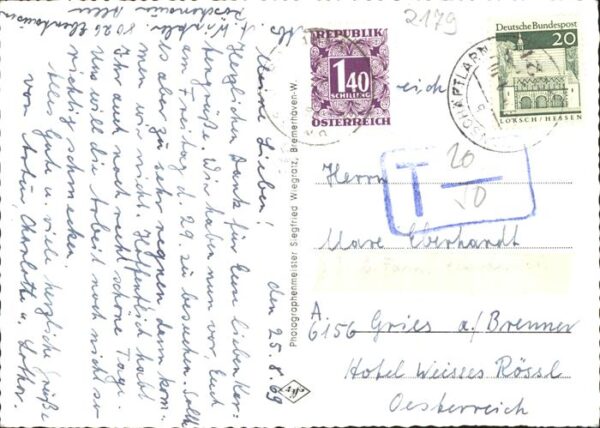 Winkler 8026 Ebenhausen
den 25.8.69
Meine Lieben!
Herzlichen Dank für Euren lieben Kar-
tengrüße. Wir haben nun vor, Euch
am Freitag d. 29. zu besuchen. Sollte
es aber zu sehr regnen dann kom-
men wir nicht. Hoffentlich habt
Ihr auch noch recht schöne Tage.
Uns will die Arbeit noch nicht so
richtig schmecken.
Alles Gute u. viele herzliche Grüße
von Charlotte u. Lothar.
Photographenmeister Siegfried Wiegratz, Bremerhaven-W.
skr
2179
REPUBLIK
1 40
SCHILLING
ÖSTERREICH
Deutsche Bundespost
20
LORSCH/HESSEN
SCHÄFTLARN
eich
T
20
50
Herrn
Marc Eberhardt
A
6156 Gries a/Brenner
Hotel Weisses Rössl
Oesterreich